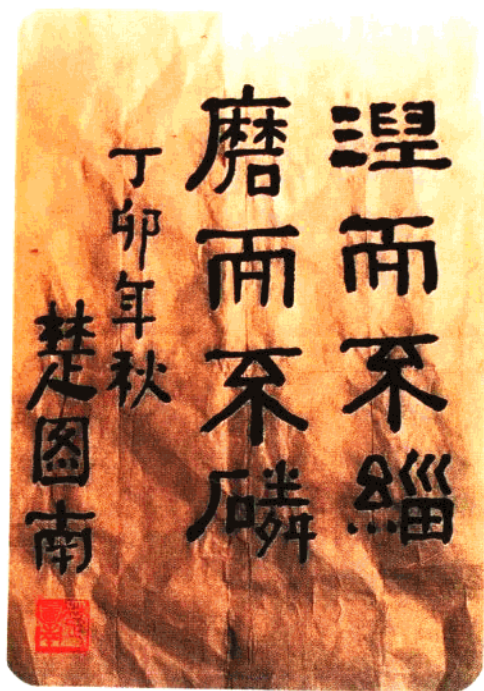 涅而不缁
磨而不磷
丁卯年秋
楚图南